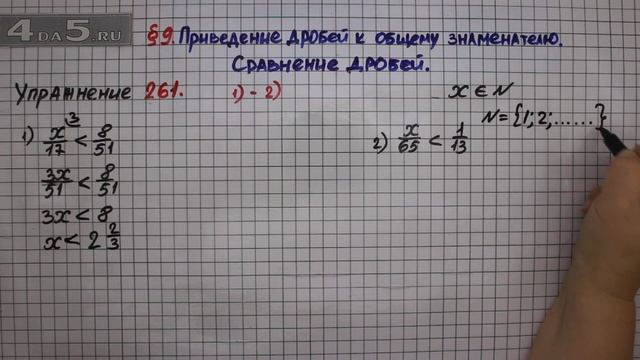 4DA5.RU
§9. Приведение дробей к общему знаменателю.
Сравнение дробей.
Упражнение 261. 1) - 2)
x ∈ N
N = {1; 2; ......}
1) x/17 ³⁾ < 8/51
3x/51 < 8/51
3x < 8
x < 2 2/3
2) x/65 < 1/13